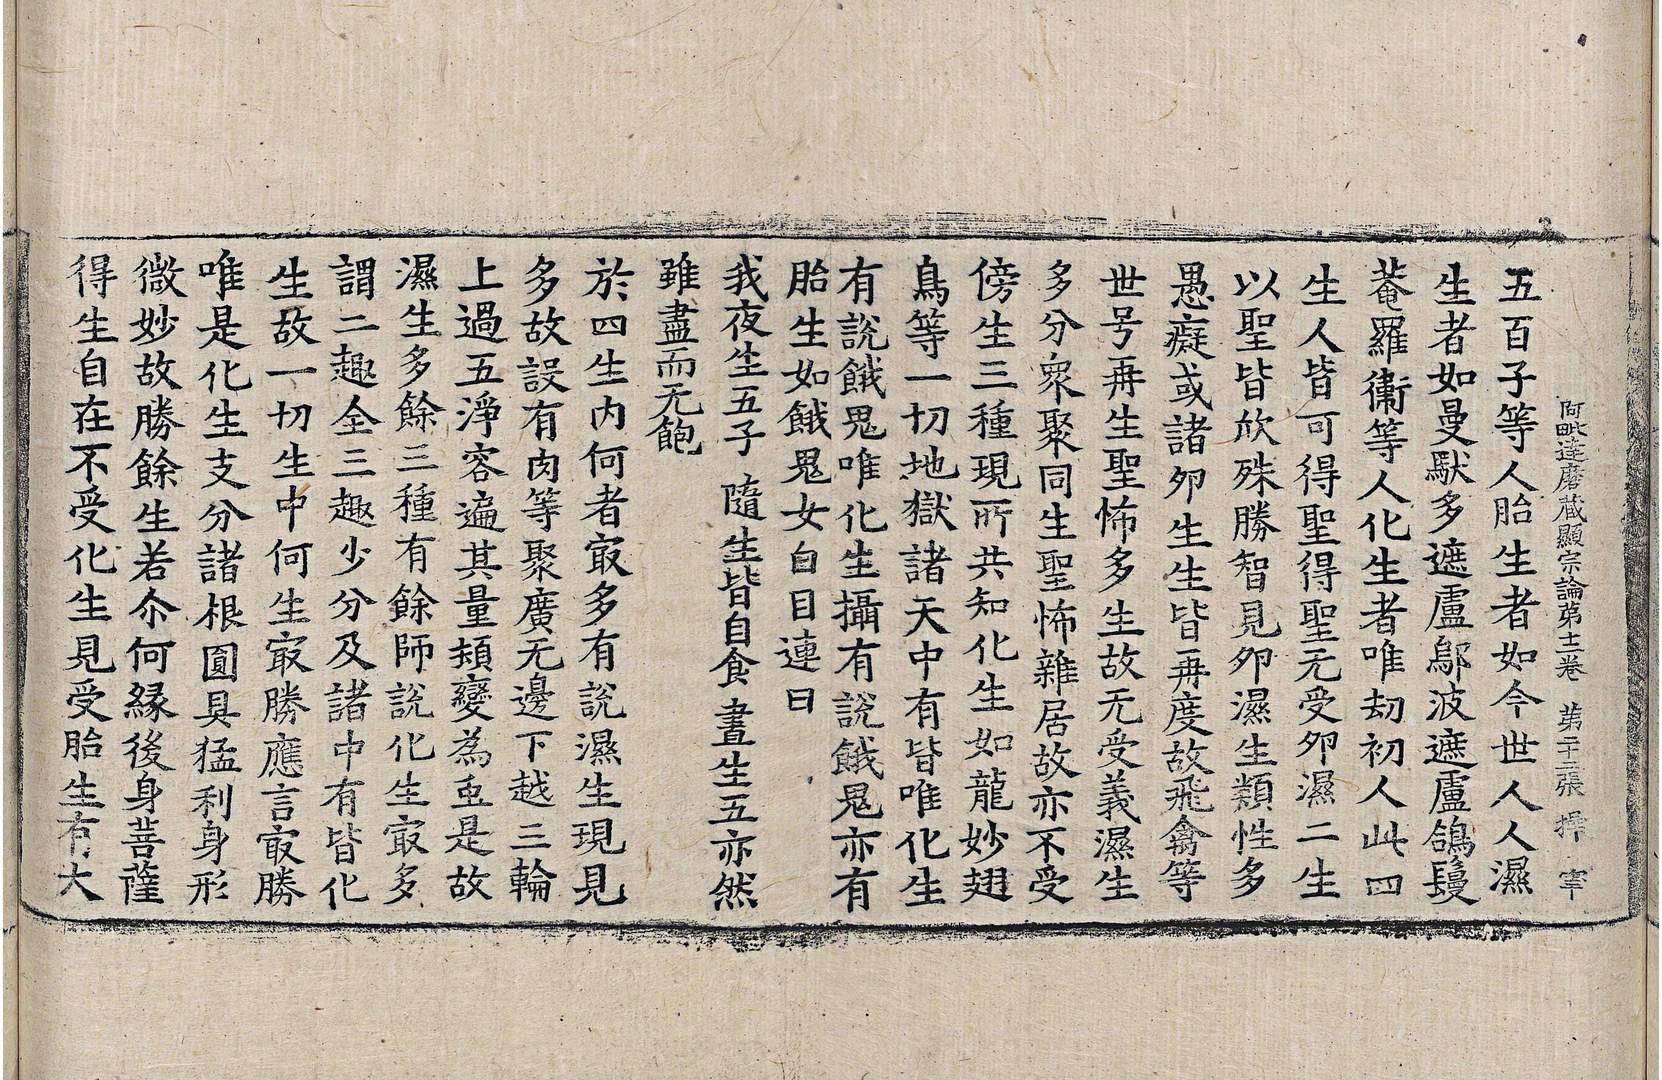 阿毗達磨藏顯宗論第十二卷 第二十二張 揷 宰
五百子等人胎生者如今世人人濕
生者如曼馱多遮盧鄔波遮盧鴿鬘
菴羅衞等人化生者唯劫初人此四
生人皆可得聖得聖无受夘濕二生
以聖皆欣殊勝智見夘濕生類性多
愚癡或諸夘生生皆再度故飛禽等
世号再生聖怖多生故无受義濕生
多分衆聚同生聖怖雜居故亦不受
傍生三種現所共知化生如龍妙翅
鳥等一切地獄諸天中有皆唯化生
有說餓鬼唯化生攝有說餓鬼亦有
胎生如餓鬼女白目連曰
我夜生五子 隨生皆自食 晝生五亦然
雖盡而无飽
於四生内何者㝡多有說濕生現見
多故設有肉等聚廣无邊下越三輪
上過五淨容遍其量頬變為䖝是故
濕生多餘三種有餘師說化生㝡多
謂二趣全三趣少分及諸中有皆化
生故一切生中何生㝡勝應言㝡勝
唯是化生支分諸根圓具猛利身形
微妙故勝餘生若尒何緣後身菩薩
得生自在不受化生見受胎生有大